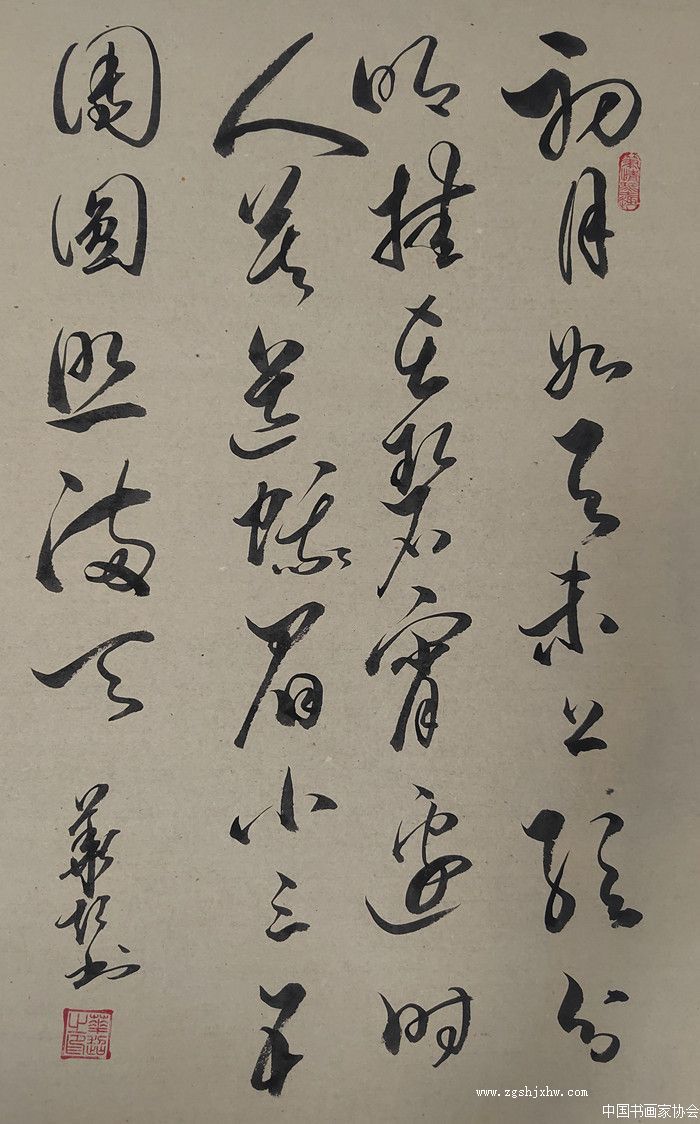 初月如弓未上弦分
明挂在碧霄邊时
人莫道蛾眉小三五
團圓照滿天
華超书
華超之印
www.zgshjxhw.com
中国书画家协会